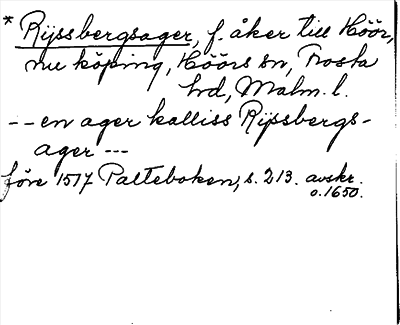 * Rijssbergsager, f. åker till Höör,
nu köping, Höörs sn, Frosta
hd, Malm. l.
-- en ager kalliss Rijssbergs-
ager ---
före 1517 Palteboken, s. 213. avskr.
o. 1650.